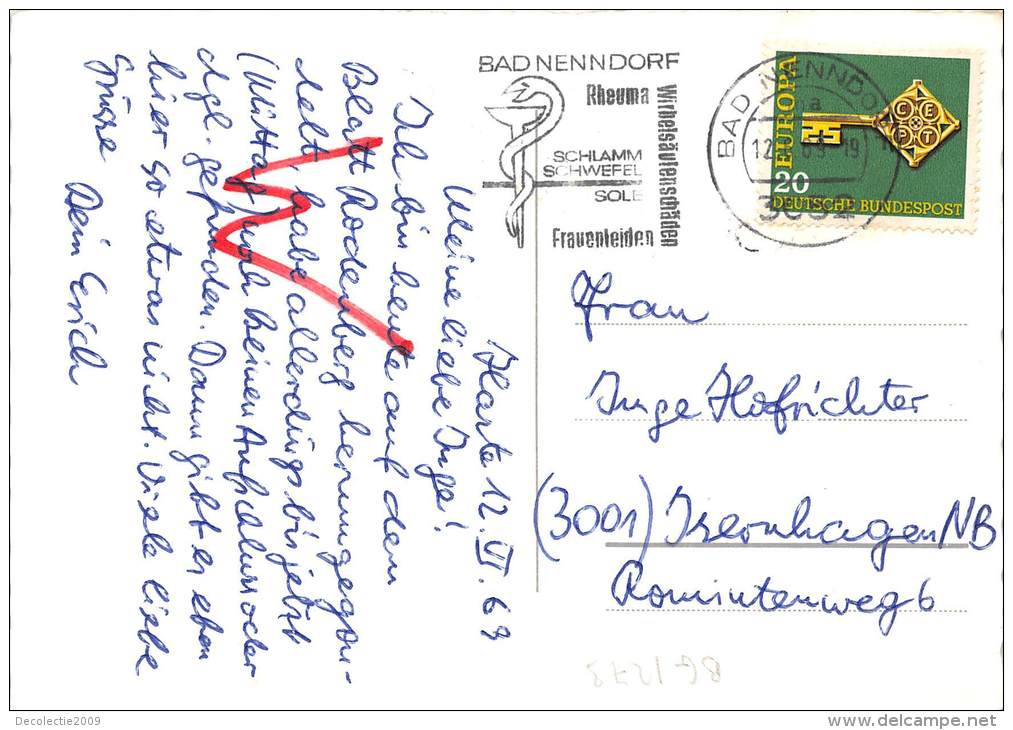 Haste 12. VI. 69
Meine liebe Inge!
Ich bin heute auf dem
Blatt Rodenberg herumgegon-
delt, habe allerdings bis jetzt
(Mittag) noch keinen Aufschluss oder
dgl. gefunden. Dann gibt es eben
hier so etwas nicht. Viele liebe
Grüsse
Dein Erich
BAD NENNDORF
Rheuma
Wirbelsäulenschäden
SCHLAMM
SCHWEFEL
SOLE
Frauenleiden
BAD NENNDORF
a
3052
EUROPA
CEPT
20
DEUTSCHE BUNDESPOST
Frau
Inge Hofrichter
(3001) Isernhagen NB
Romintenweg 6
BG 1273
Decolectie2009
www.delcampe.net